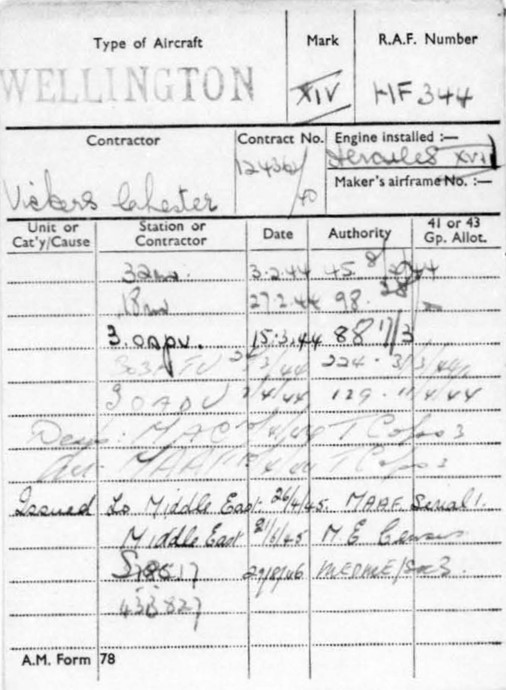 Type of Aircraft
Mark
R.A.F. Number
WELLINGTON
XIV
HF 344
Contractor
Contract No.
Engine installed :—
Vickers Chester
124362/40
Hercules XVII
Maker's airframe No. :—
Unit or Cat'y/Cause
Station or Contractor
Date
Authority
41 or 43 Gp. Allot.
32 mu. 3.2.44 45.
18 mu 27.2.44 98.
3. OAPU. 15.3.44 88 17/3
/3/44 224. 31/3/44
3 OADU /4/44 129. 11/4/44
Desp: MAC /4/44 T Cols 3
Arr. MAAF /4/44 T Cols 3
Issued to Middle East. 26/4/45. MAAF Serial 1.
Middle East 21/6/45 M.E Census
29/8/46 MEDME/
43B 827
A.M. Form 78